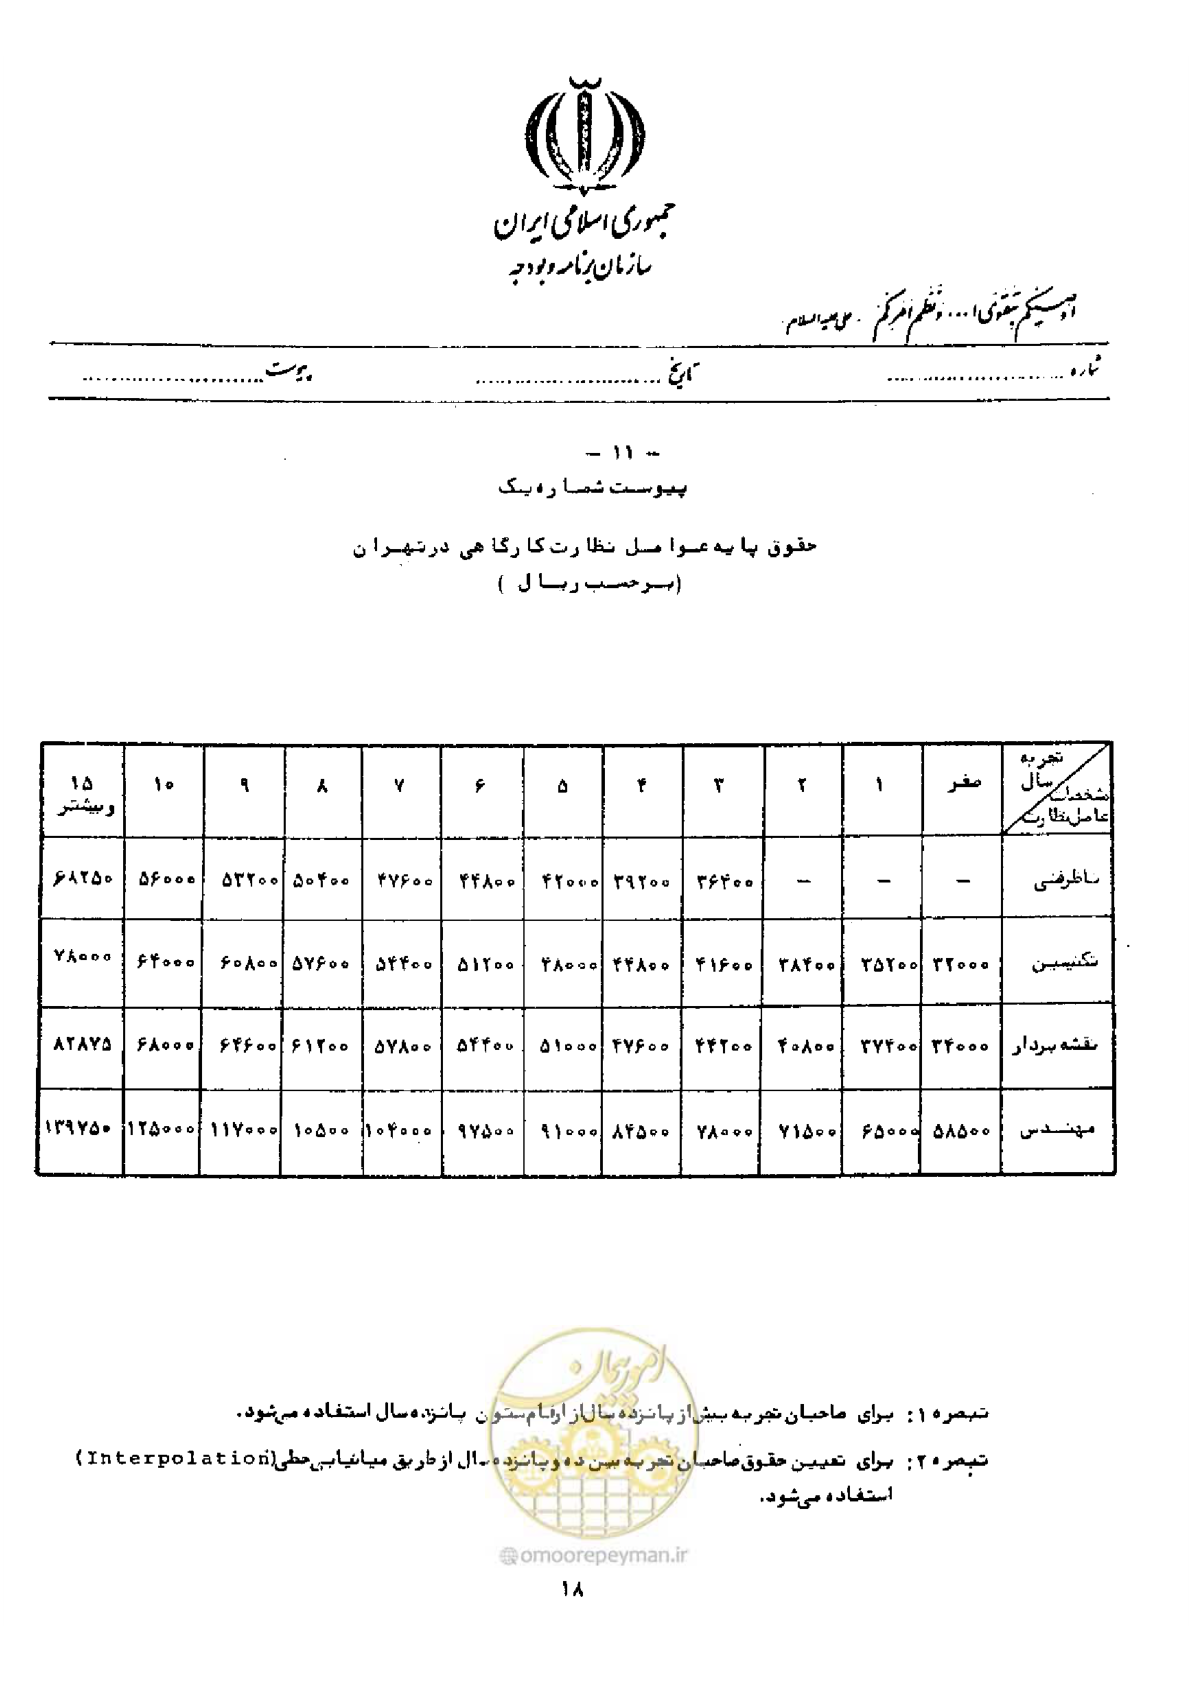 جمهوری اسلامی ایران
سازمان برنامه و بودجه
اوصیکم بتقوی ا... و نظم امرکم . علی علیه السلام .
شماره .......................... تاریخ .......................... پیوست ..........................
- ۱۱ -
پیوست شماره یک
حقوق پایه عوامل نظارت کارگاهی در تهران
(برحسب ریال )
تجربه سال مشخصات عامل نظارت صفر ۱ ۲ ۳ ۴ ۵ ۶ ۷ ۸ ۹ ۱۰ ۱۵ و بیشتر
ناظر فنی — — — ۳۶۴۰۰ ۳۹۲۰۰ ۴۲۰۰۰ ۴۴۸۰۰ ۴۷۶۰۰ ۵۰۴۰۰ ۵۳۲۰۰ ۵۶۰۰۰ ۶۸۲۵۰
تکنیسین ۳۲۰۰۰ ۳۵۲۰۰ ۳۸۴۰۰ ۴۱۶۰۰ ۴۴۸۰۰ ۴۸۰۰۰ ۵۱۲۰۰ ۵۴۴۰۰ ۵۷۶۰۰ ۶۰۸۰۰ ۶۴۰۰۰ ۷۸۰۰۰
نقشه بردار ۳۴۰۰۰ ۳۷۴۰۰ ۴۰۸۰۰ ۴۴۲۰۰ ۴۷۶۰۰ ۵۱۰۰۰ ۵۴۴۰۰ ۵۷۸۰۰ ۶۱۲۰۰ ۶۴۶۰۰ ۶۸۰۰۰ ۸۲۸۷۵
مهندس ۵۸۵۰۰ ۶۵۰۰۰ ۷۱۵۰۰ ۷۸۰۰۰ ۸۴۵۰۰ ۹۱۰۰۰ ۹۷۵۰۰ ۱۰۴۰۰۰ ۱۰۵۰۰ ۱۱۷۰۰۰ ۱۲۵۰۰۰ ۱۳۹۷۵۰
تبصره ۱: برای صاحبان تجربه بیش از پانزده سال از ارقام ستون پانزده سال استفاده می‌شود.
تبصره ۲: برای تعیین حقوق صاحبان تجربه بین ده و پانزده سال از طریق میانیابی خطی (Interpolation)
استفاده می‌شود.
امور پیمان
@omoorepeyman.ir
۱۸